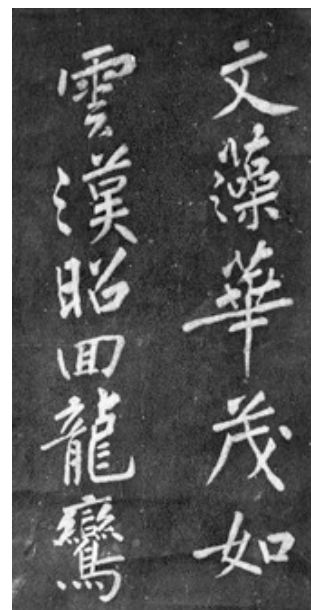 文藻華茂如
雲漢昭回龍鸞